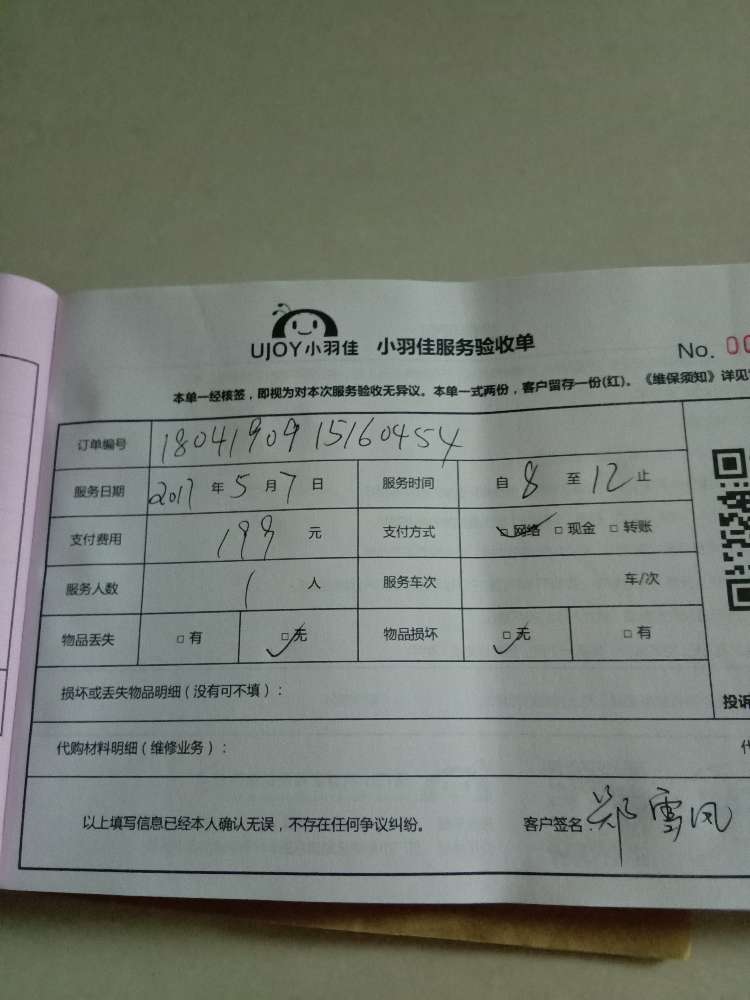 UJOY小羽佳 小羽佳服务验收单
No. 00
本单一经核签，即视为对本次服务验收无异议。本单一式两份，客户留存一份(红)。《维保须知》详见
订单编号 1804190915160454
服务日期 2017年5月7日 服务时间 自8至12止
支付费用 199元 支付方式 □网络 □现金 □转账
服务人数 1人 服务车次 车/次
物品丢失 □有 □无 物品损坏 □无 □有
损坏或丢失物品明细（没有可不填）：
投诉
代购材料明细（维修业务）：
以上填写信息已经本人确认无误，不存在任何争议纠纷。 客户签名：郑雪风